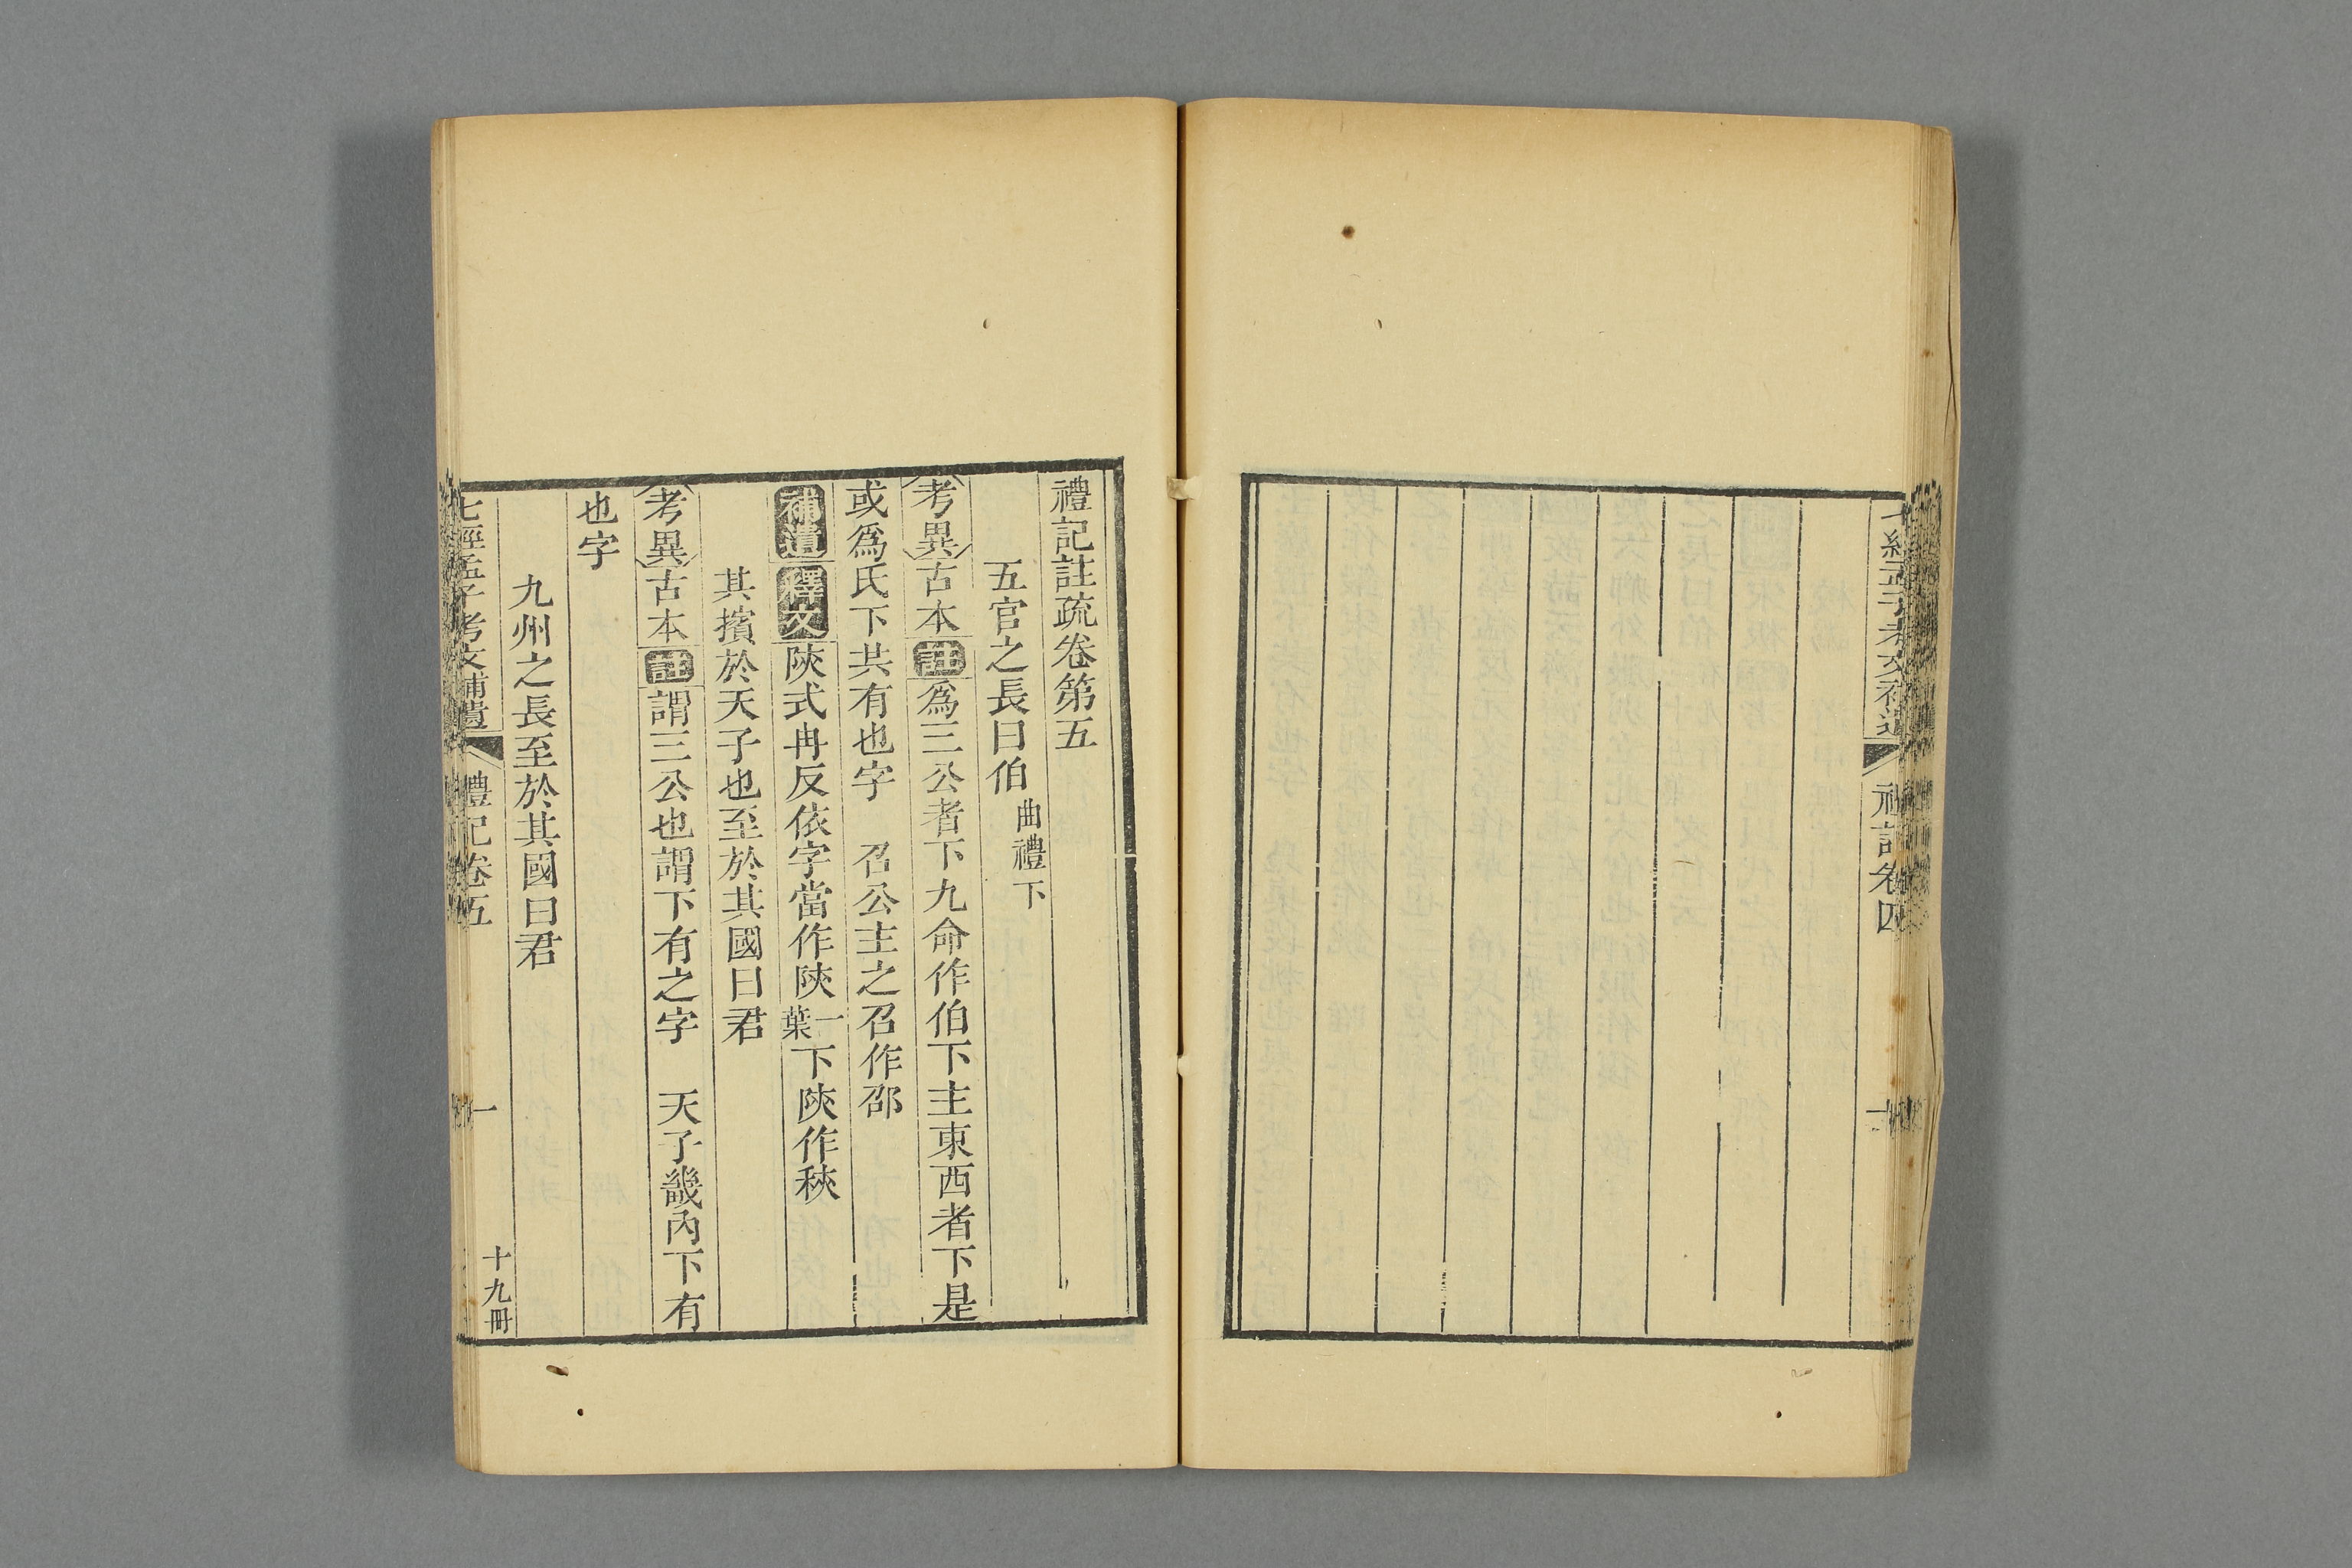 七經孟子考文補遺 禮記卷四 十
禮記註疏卷第五
五官之長曰伯 曲禮下
考異古本註為三公者下九命作伯下主東西者下是
或爲氏下共有也字 召公主之召作邵
補遺釋文陝式冉反依字當作陝一葉下陝作䄒
其擯於天子也至於其國曰君
考異古本註謂三公也謂下有之字 天子畿內下有
也字
九州之長至於其國曰君
七經孟子考文補遺 禮記卷五 一 十九冊